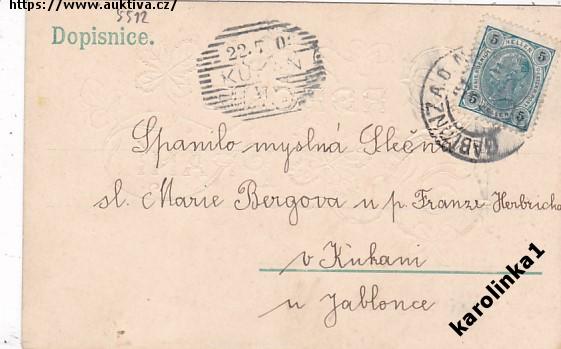 https://www.auktiva.cz/
5512
Dopisnice.
22.7.0
KUKAN
5 HELLER 5
5 5
GABLONZ A. D. N.
Spanilo myslná Slečna
sl. Marie Bergova u p. Franze Herbricha
v Kukani
u Jablonce
karolinka1